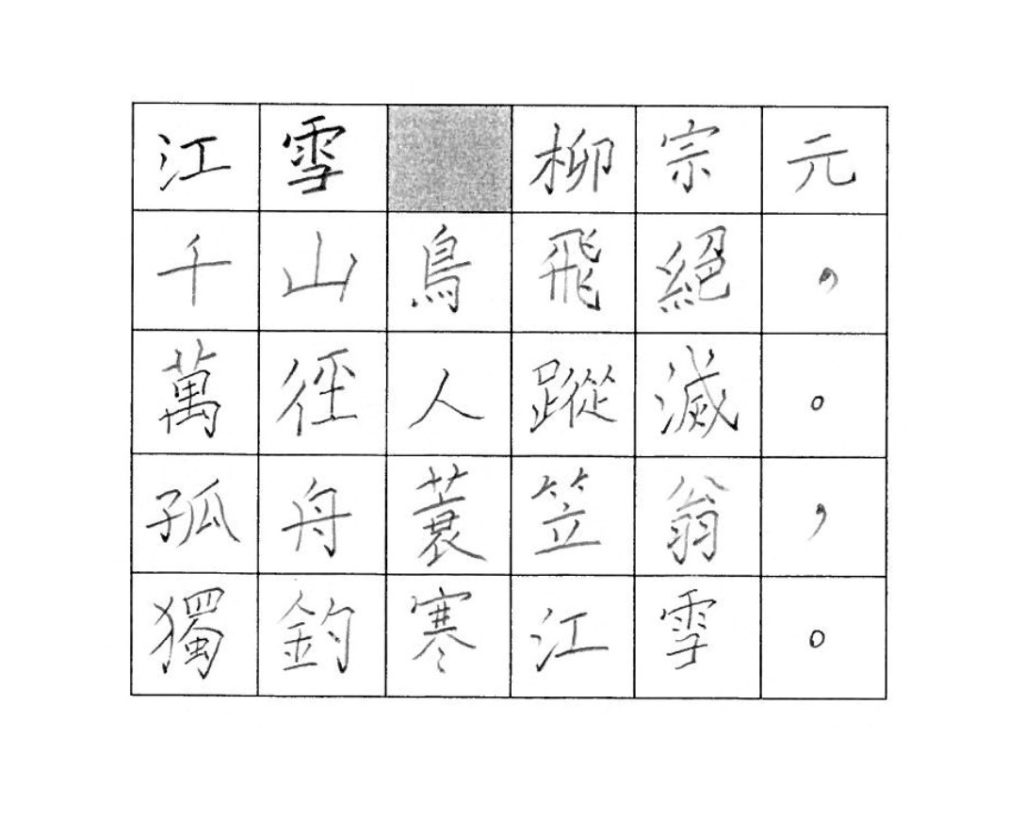 江雪 柳宗元
千山鳥飛絕，
萬徑人蹤滅。
孤舟蓑笠翁，
獨釣寒江雪。